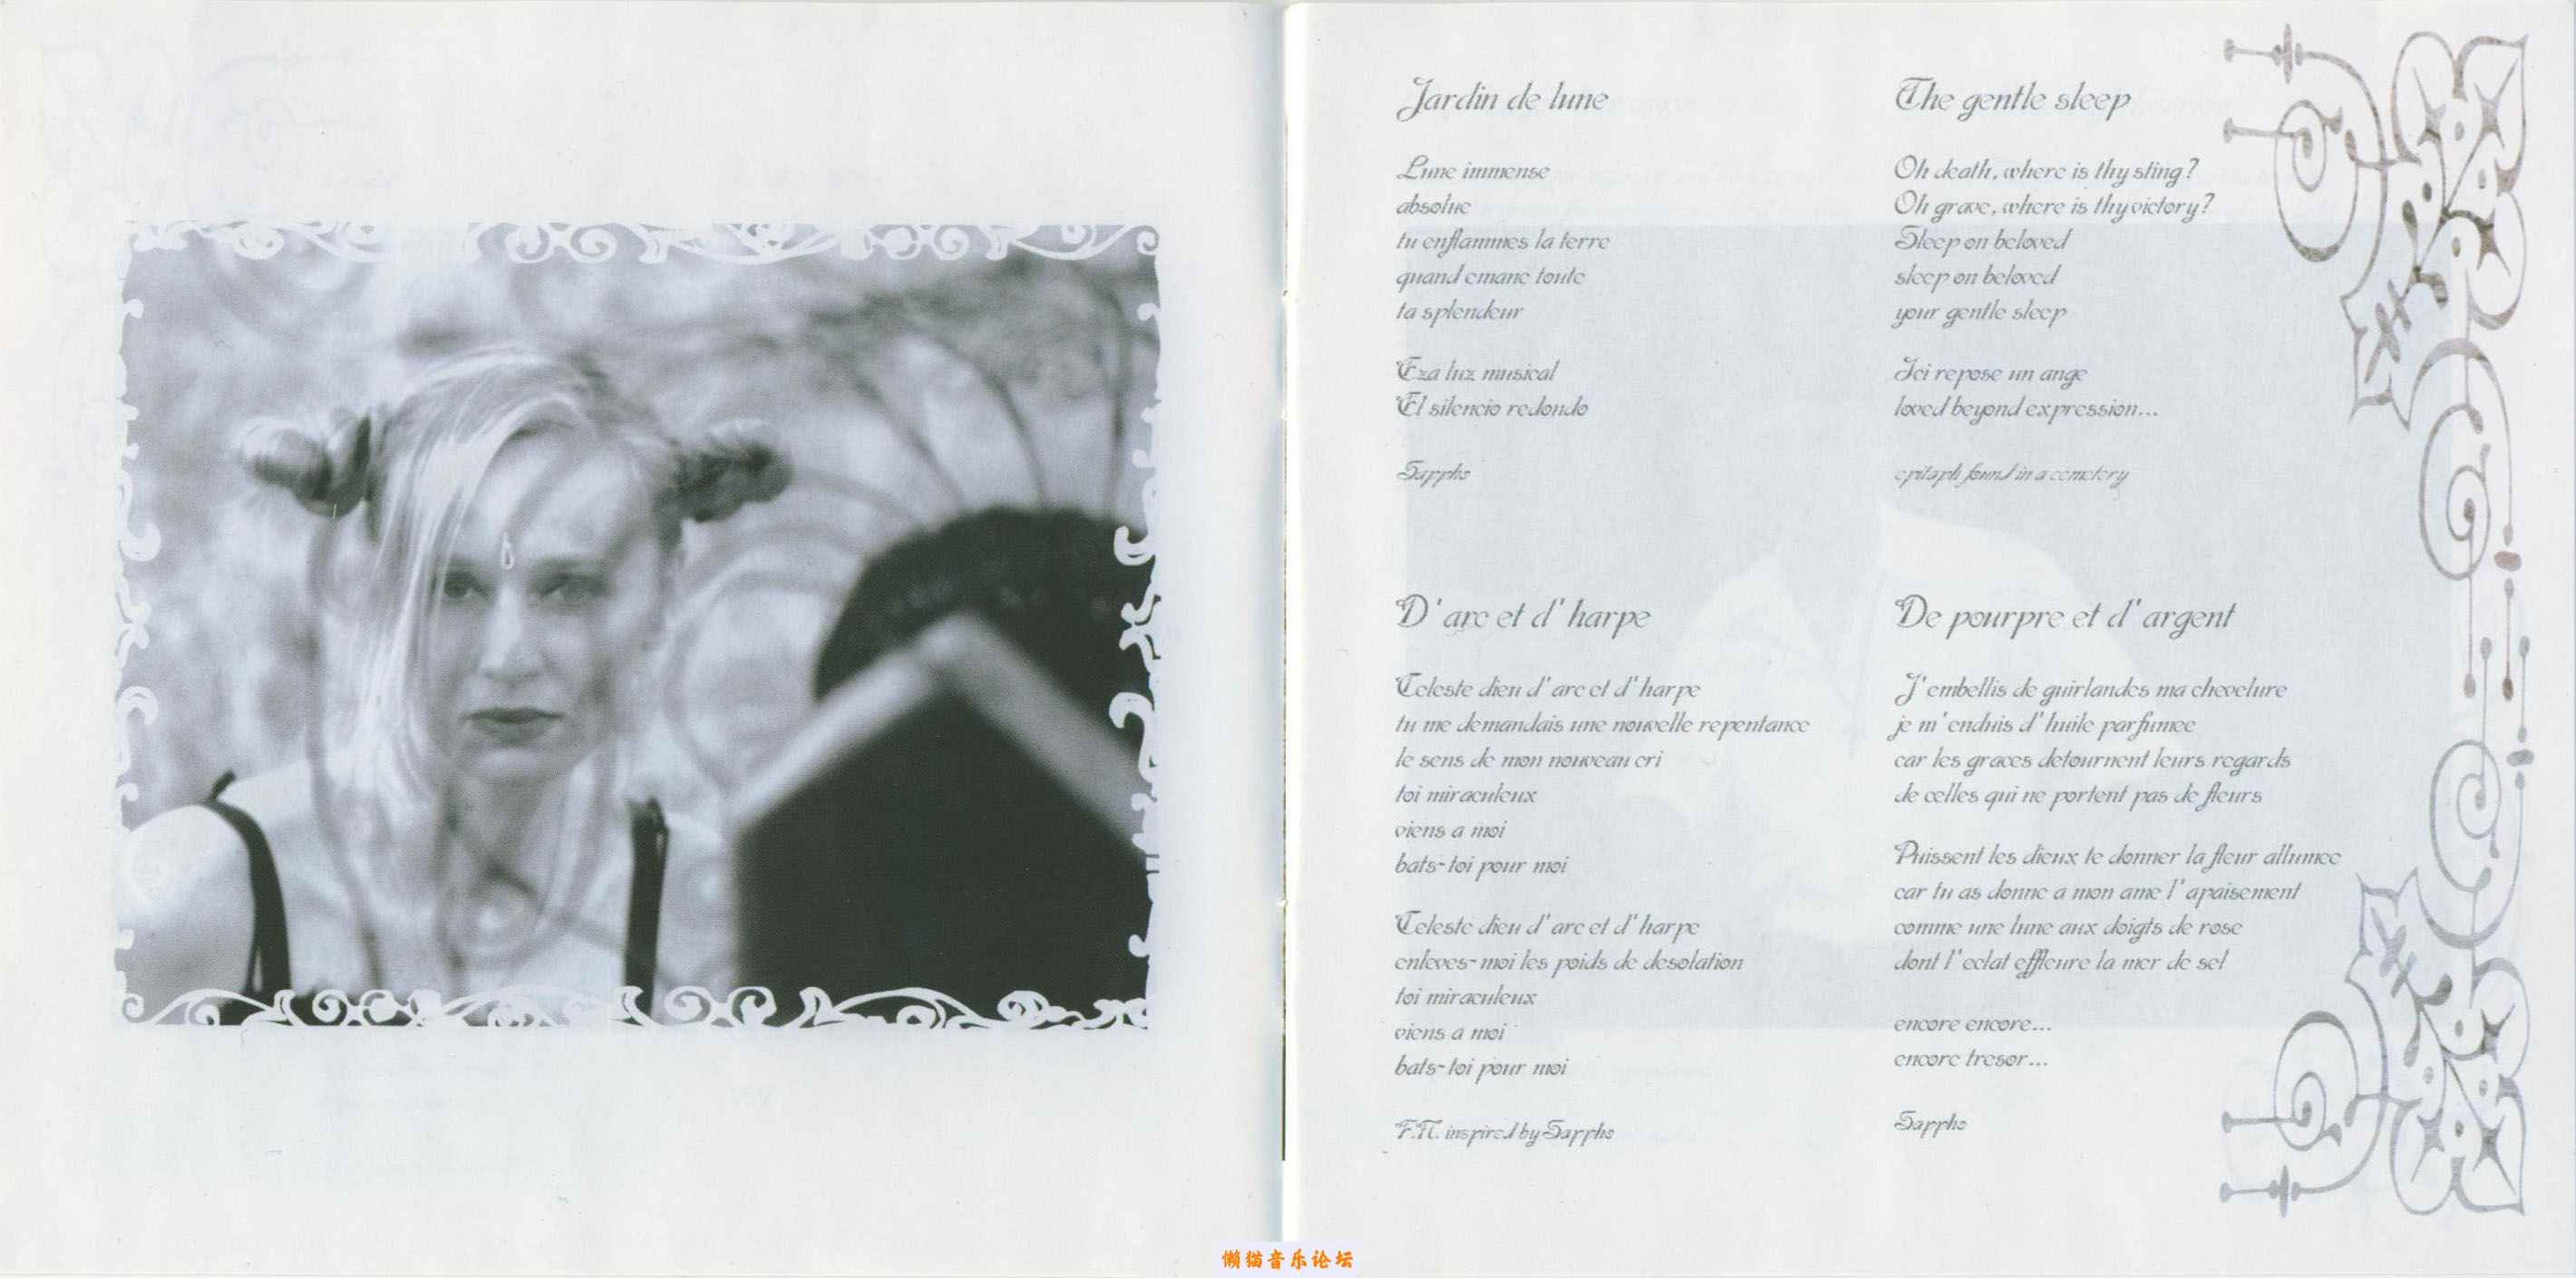 Jardin de lune
Lune immense
absolue
tu enflammes la terre
quand emane toute
ta splendeur
Eza luz musical
El silencio redondo
Sappho
The gentle sleep
Oh death, where is thy sting?
Oh grave, where is thy victory?
Sleep on beloved
sleep on beloved
your gentle sleep
Ici repose un ange
loved beyond expression...
epitaph found in a cemetery
D'arc et d'harpe
Celeste dieu d'arc et d'harpe
tu me demandais une nouvelle repentance
le sens de mon nouveau cri
toi miraculeux
viens a moi
bats-toi pour moi
Celeste dieu d'arc et d'harpe
enleves-moi les poids de desolation
toi miraculeux
viens a moi
bats-toi pour moi
F.N. inspired by Sappho
De pourpre et d'argent
J'embellis de guirlandes ma chevelure
je m'enduis d'huile parfumee
car les graces detournent leurs regards
de celles qui ne portent pas de fleurs
Puissent les dieux te donner la fleur allumee
car tu as donne a mon ame l'apaisement
comme une lune aux doigts de rose
dont l'eclat effleure la mer de sel
encore encore...
encore tresor...
Sappho
懒猫音乐论坛